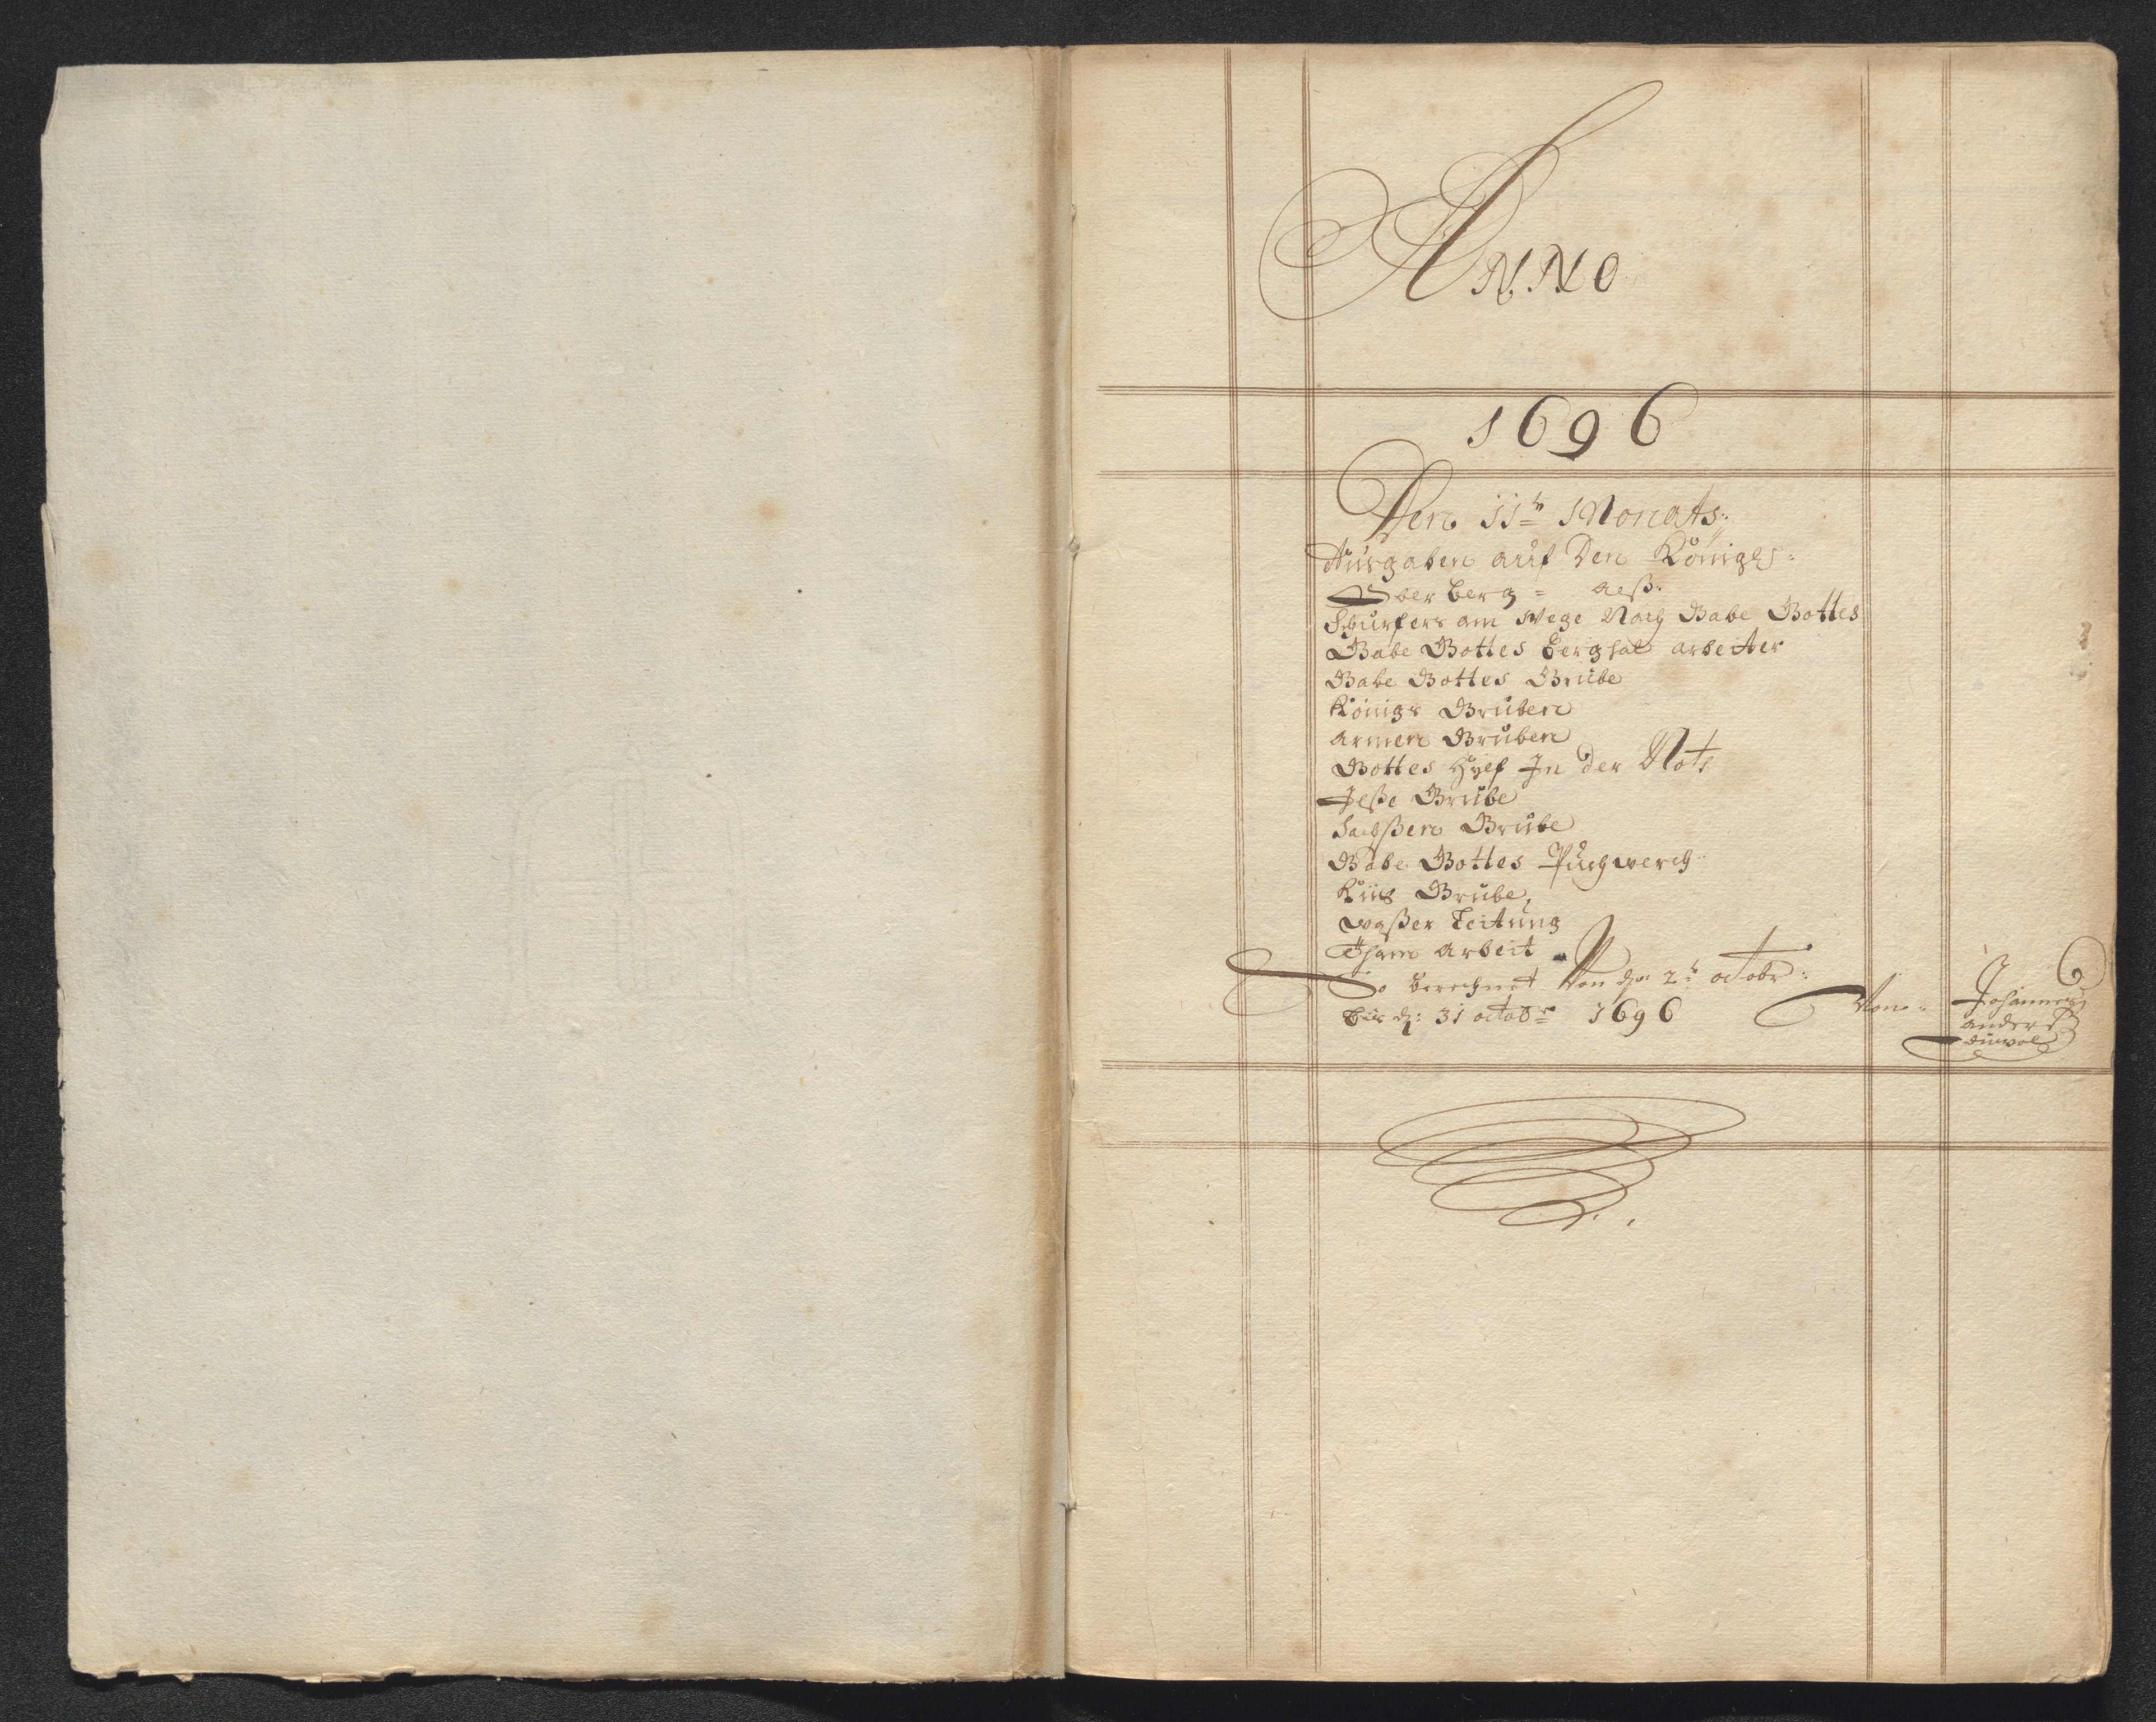 ANNO
1696
Den 11te Monats:
Ausgaben auf Den Königl:
Ober berg =
Schurfers am Wege Nach Gabe Gottes
Gabe Gottes berghal arbeiter
Gabe Gottes Grube
Königs Gruben
armen Gruben
Gottes Hylf In der Noth
Grube
Sachßen Grube
Gabe Gottes Puchwerch
Grube,
waßer Leitung
Tham arbeit
So berechnet Von den 2te octobr:
biß d: 31 octobr 1696
Von Johannes
anders